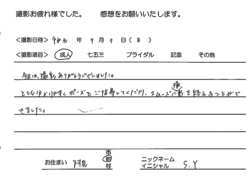 撮影お疲れ様でした。 感想をお願いいたします。
<撮影日時> 年 月 日（日）
<撮影項目> 成人 七五三 ブライダル 記念 その他
今日は、撮影ありがとうございました。
とても分かりやすくポーズをご指導してくださり、スムーズに撮影を終えることがで
きました。
お住まい 市 町 村 ニックネーム イニシャル S.Y